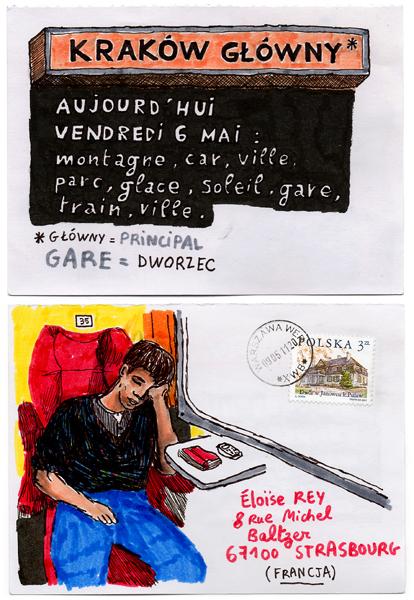 KRAKÓW GŁÓWNY*
AUJOURD'HUI
VENDREDI 6 MAI :
montagne, car, ville,
parc, glace, soleil, gare,
train, ville.
* GŁÓWNY = PRINCIPAL
GARE = DWORZEC
35
WARSZAWA WER
09.05.11.20
*XWB*
POLSKA 3 ZŁ
Éloïse REY
8 Rue Michel
Baltzer
67100 STRASBOURG
(FRANCJA)